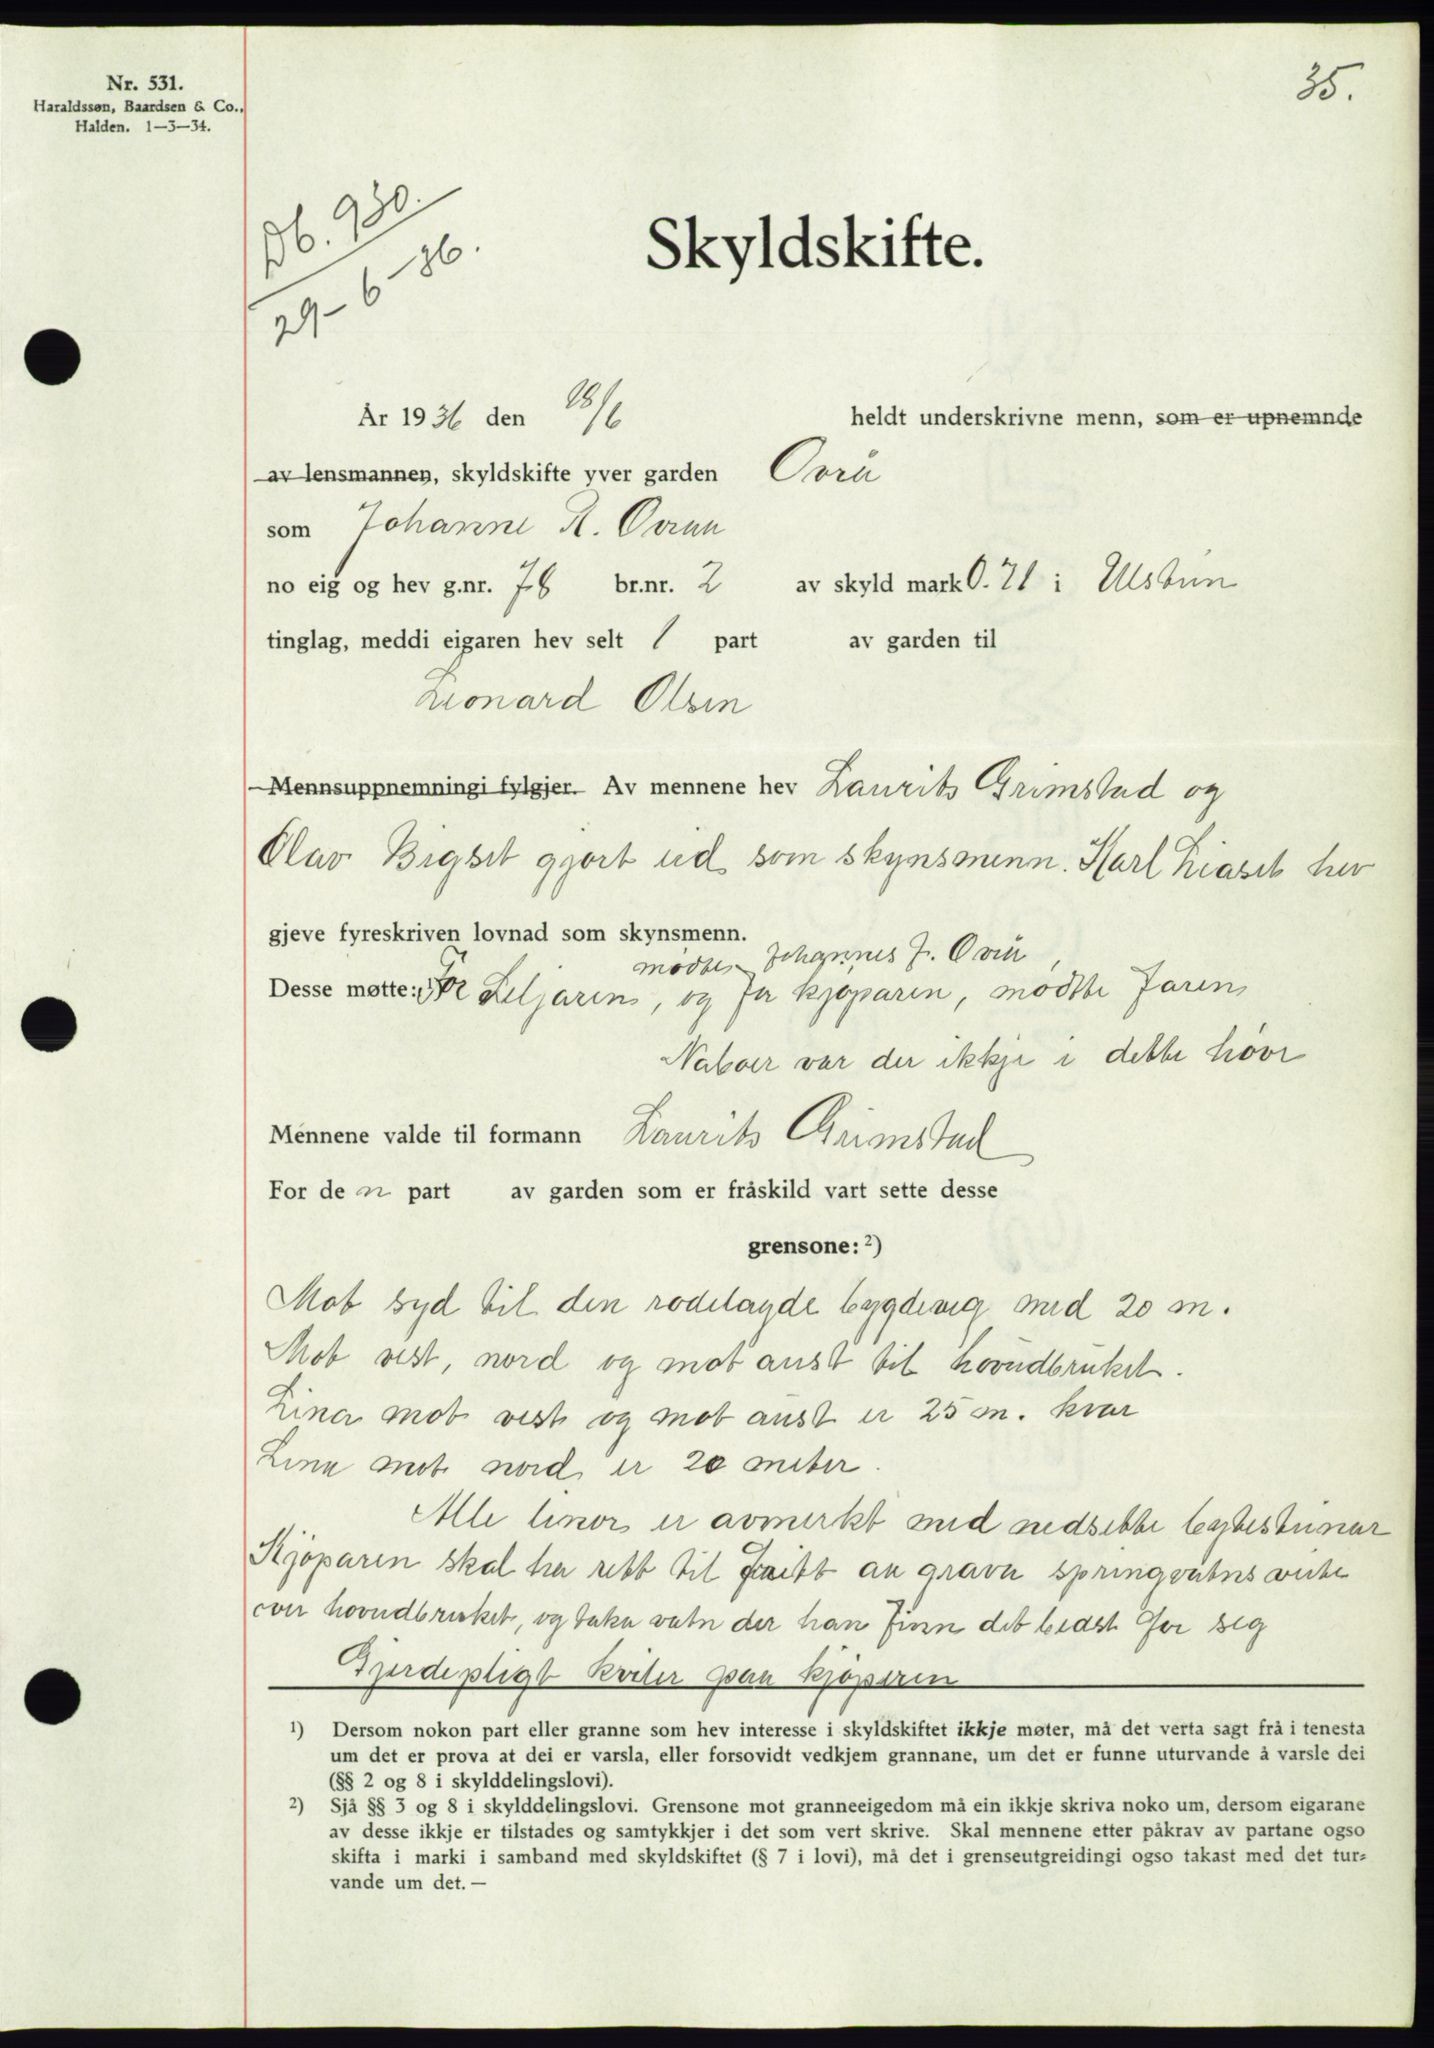 Nr. 531.
Haraldssøn, Baardsen & Co.,
Halden. 1—3—34.
35.
Db. 930.
29-6-36.
Skyldskifte.
År 1936 den 18/6 heldt underskrivne menn, som er upnemnde
av lensmannen, skyldskifte yver garden Ovrå
som Johanne R. Ovraa
no eig og hev g.nr. 78 br.nr. 2 av skyld mark 0.71 i Ulstein
tinglag, meddi eigaren hev selt 1 part av garden til
Leonard Olsen
Mennsuppnemningi fylgjer. Av mennene hev Laurits Grimstad og
Olav Bigset gjort eid som skynsmenn. Karl Liaset hev
gjeve fyreskriven lovnad som skynsmenn.
mødte Johannes J. Ovrå,
Desse møtte: For Seljaren, og for kjøparen, mødtte faren
Naboer var der ikkje i dette høve
Mennene valde til formann Laurits Grimstad
For den part av garden som er fråskild vart sette desse
grensone: 2)
Mot syd til den rodelagde bygdeveg med 20 m.
Mot vest, nord og mot aust til hovudbruket.
Lina mot vest og mot aust er 25 m. kvar
Lina mot nord er 20 meter.
Alle linor er avmerkt med nedsette bytesteinar
Kjøparen skal ha rett til fritt aa grava springvatns veite
over hovudbruket, og taka vatn der han finn det bedst for seg
Gjerdepligt kviler paa kjøparen
1) Dersom nokon part eller granne som hev interesse i skyldskiftet ikkje møter, må det verta sagt frå i tenesta
um det er prova at dei er varsla, eller forsovidt vedkjem grannane, um det er funne uturvande å varsle dei
(§§ 2 og 8 i skylddelingslovi).
2) Sjå §§ 3 og 8 i skylddelingslovi. Grensone mot granneeigedom må ein ikkje skriva noko um, dersom eigarane
av desse ikkje er tilstades og samtykkjer i det som vert skrive. Skal mennene etter påkrav av partane ogso
skifta i marki i samband med skyldskiftet (§ 7 i lovi), må det i grenseutgreidingi ogso takast med det tur-
vande um det. —